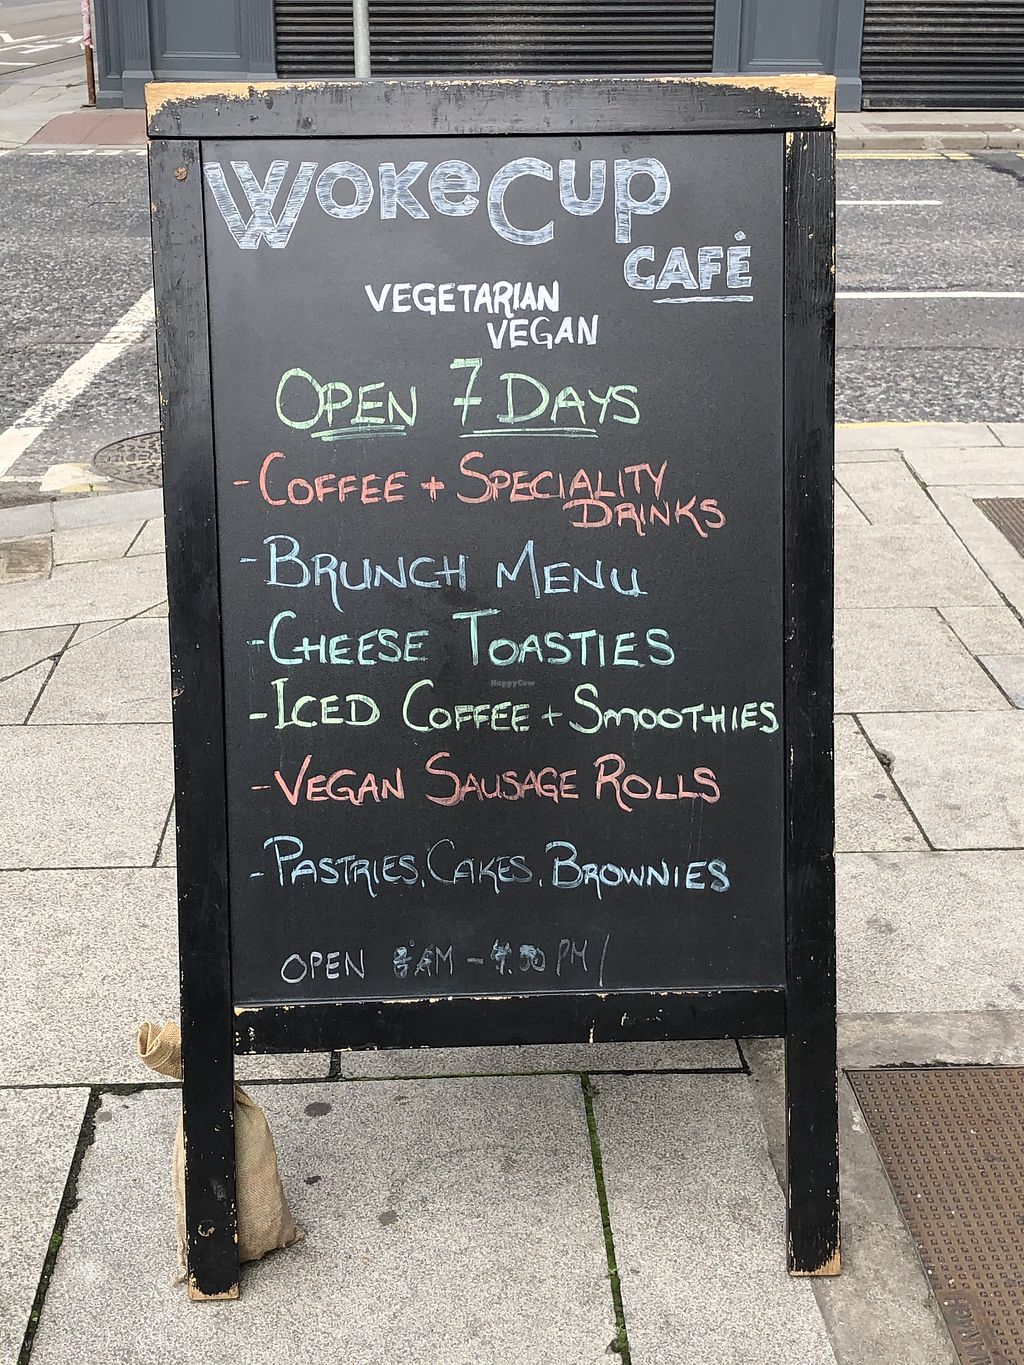 WOKE CUP
CAFÉ
VEGETARIAN
VEGAN
OPEN 7 DAYS
- COFFEE + SPECIALITY
DRINKS
- BRUNCH MENU
- CHEESE TOASTIES
HappyCow
- ICED COFFEE + SMOOTHIES
- VEGAN SAUSAGE ROLLS
- PASTRIES, CAKES, BROWNIES
OPEN 8AM - 4.30 PM